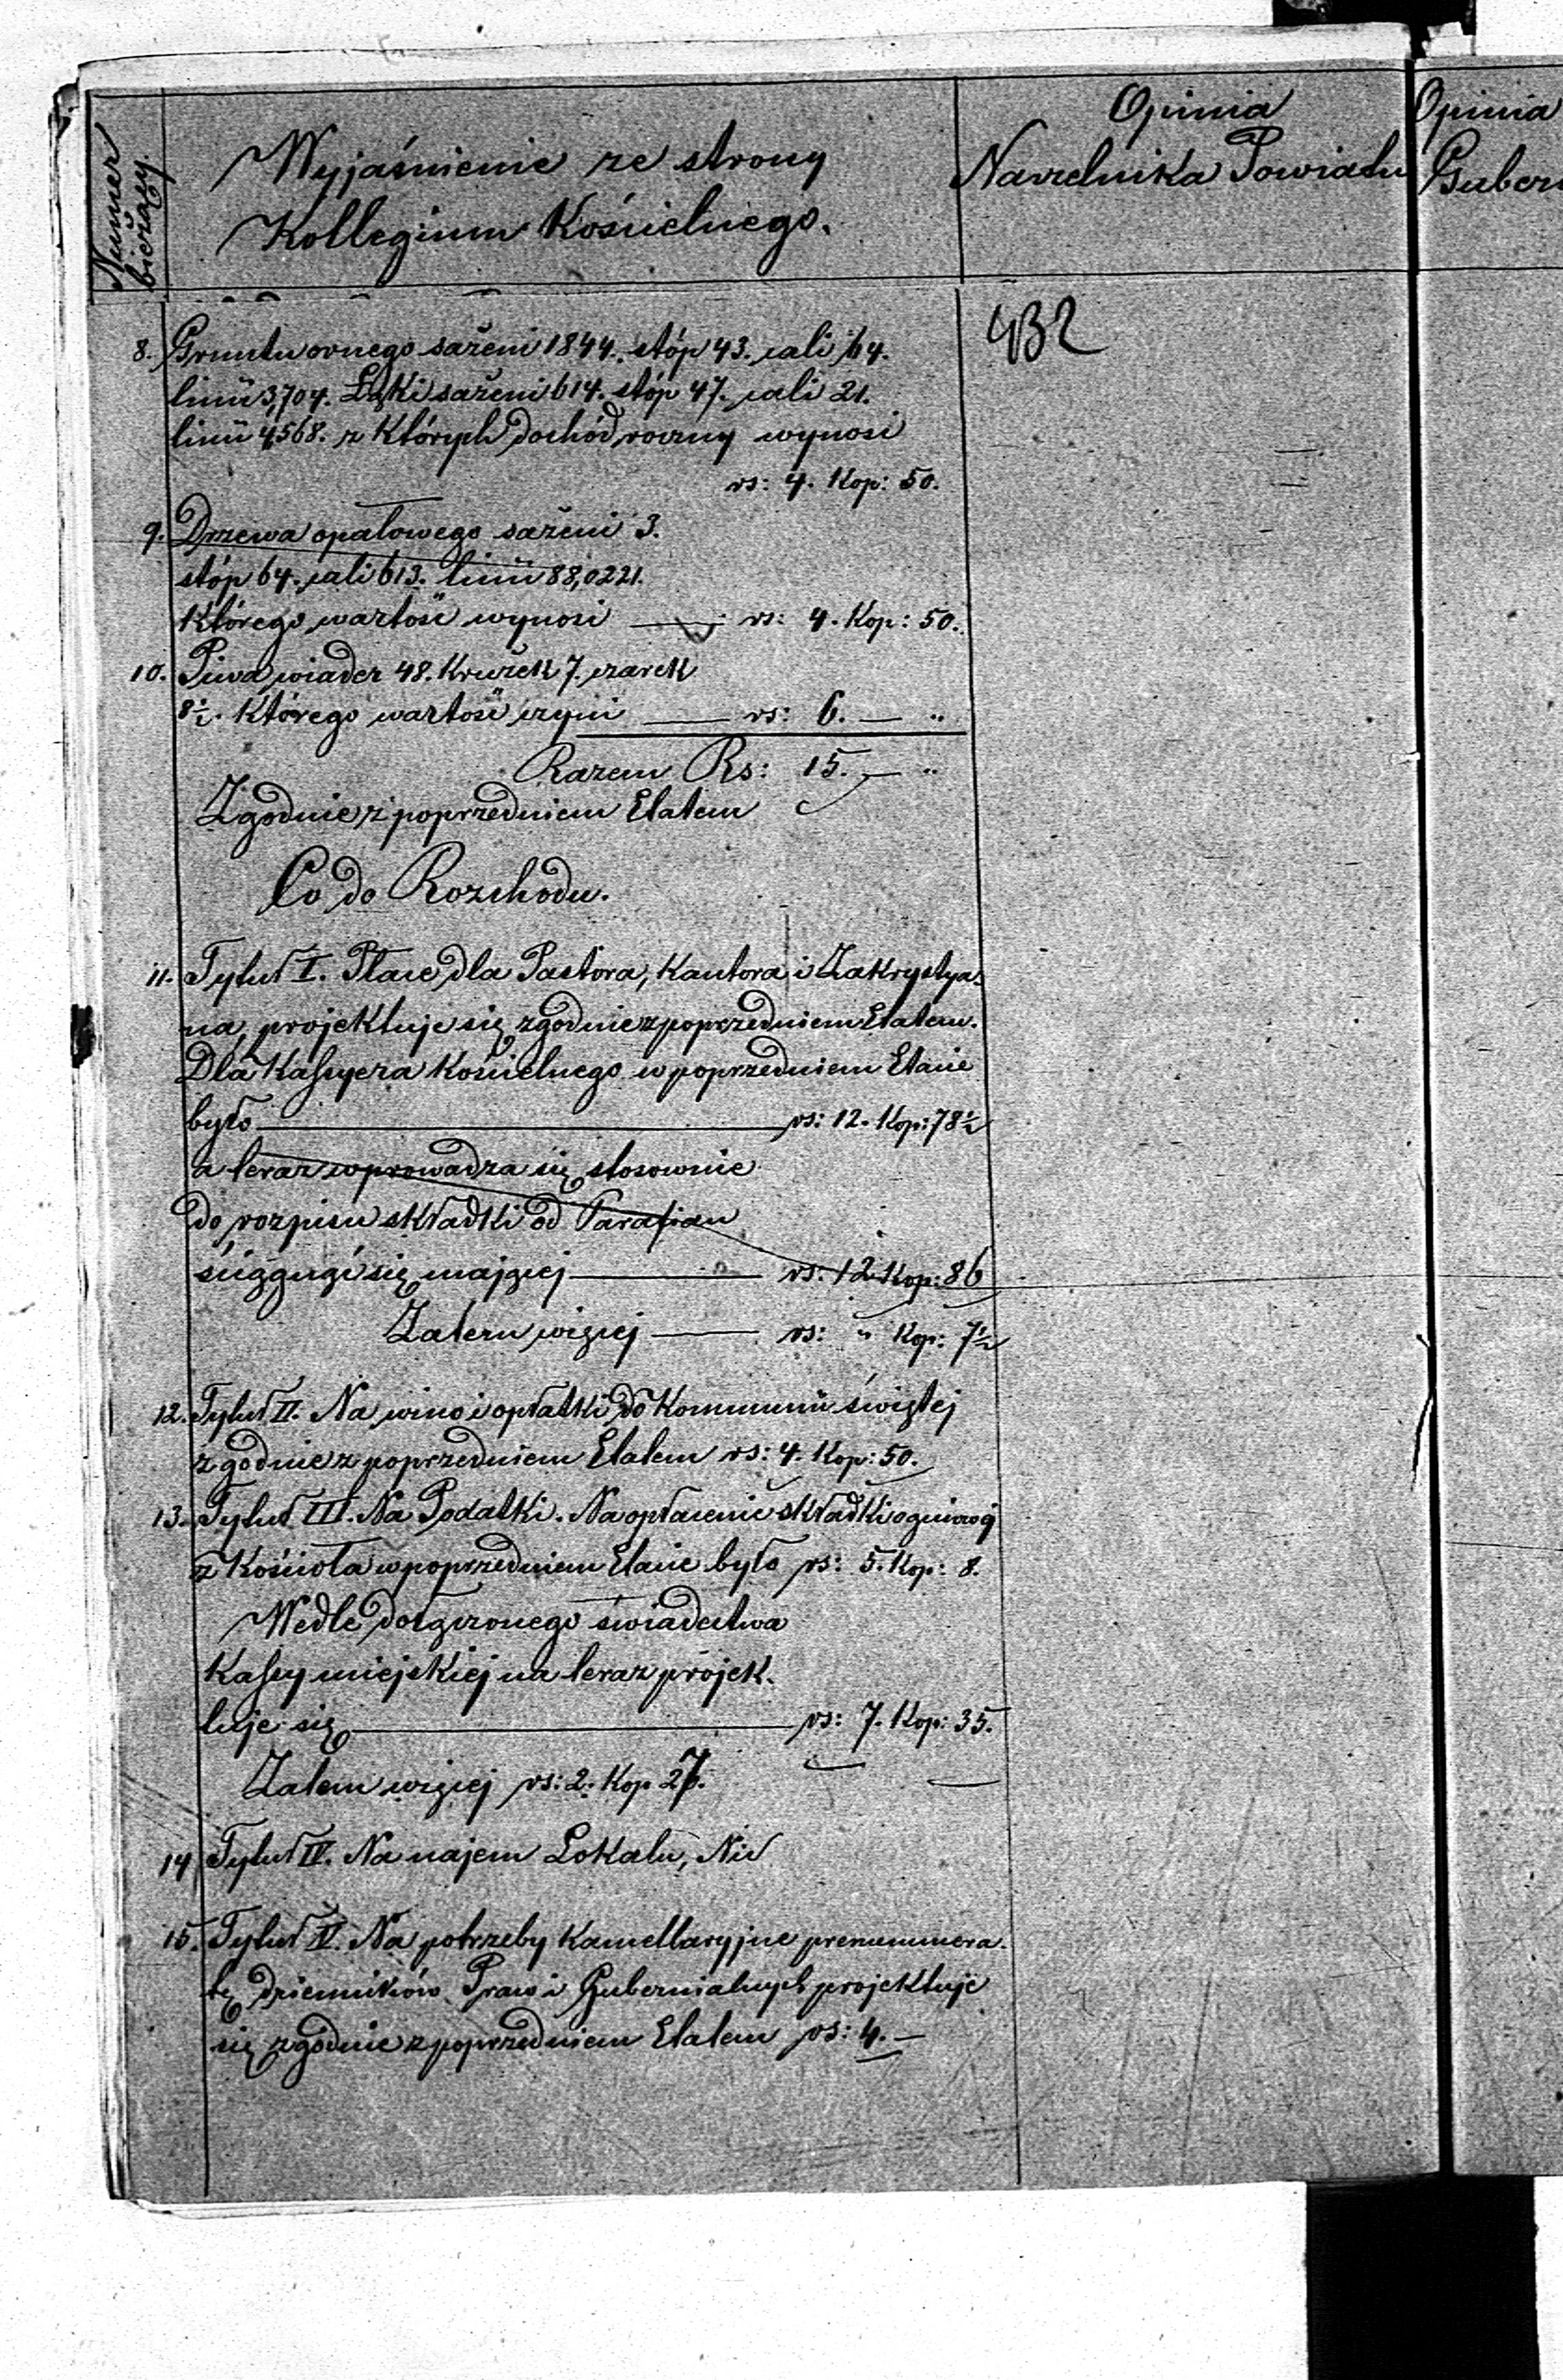 Numer
bieżący.
Wyjaśnienie ze strony
Kollegium Kościelnego.
Opinia
Naczelnika Powiatu
Opinia
Guber
432
8. Gruntu ornego sażeni 1844. stóp 43. cali 64.
linii 3,704. Łąki sażeni 614. stóp 47. cali 21.
linii 4,568. z których dochód roczny wynosi
rs: 4. Kop: 50.
9. Drzewa opałowego sażeni 3.
stóp 64. cali 613. linii 88,0221.
którego wartość wynosi — rs: 4. Kop: 50.
10. Piwa wiader 48. Krużek 7. czarek
8½. którego wartość czyni — rs: 6. — "
Razem Rs: 15. — "
Zgodnie z poprzedniem Etatem
Co do Rozchodu.
11. Tytuł I. Płace dla Pastora, Kantora i Zakrystya-
na, projektuje się zgodnie z poprzedniem Etatem.
Dla Kassyera Kościelnego w poprzedniem Etacie
było — rs: 12. Kop: 78½
a teraz wprowadza się stosownie
do rozpisu składki od Parafian
ściągnąć się mającej — rs: 12 Kop: 86
Zatem więcej — rs: " Kop: 7½
12. Tytuł II. Na wino i opłatki do Kommunii świętej
zgodnie z poprzedniem Etatem rs: 4. Kop: 50.
13. Tytuł III. Na Podatki. Na opłacenie składki ogniowej
z Kościoła w poprzedniem Etacie było rs: 5. Kop: 8.
Wedle dołączonego świadectwa
Kassy miejskiej na teraz projek-
tuje się — rs: 7. Kop: 35.
Zatem więcej rs: 2. Kop 27.
14 Tytuł IV. Na najem Lokalu, Nic
15. Tytuł V. Na potrzeby Kancellaryjne prenummera-
tę Dzienników Praw i Gubernialnych projektuje
się zgodnie z poprzedniem Etatem rs: 4. —